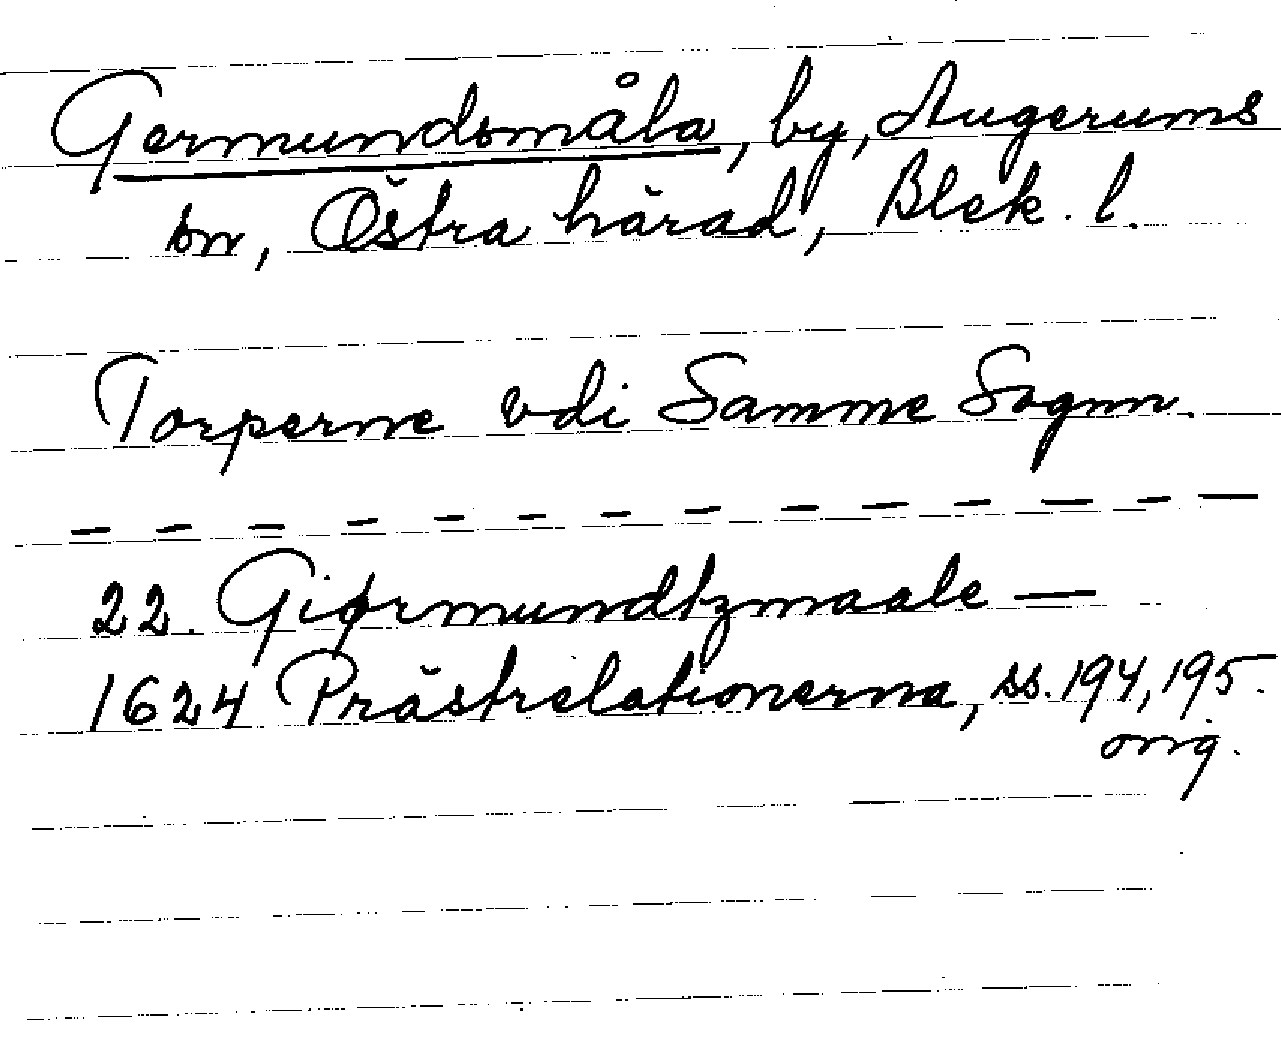 Germundsmåla, by, Augerums
sn, Östra härad, Blek. l.
Torperne vdi Samme Sognn.
— — — — — — — — — — — — — —
22. Giørmundtzmaale —
1624 Prästrelationerna, ss. 194, 195.
orig.